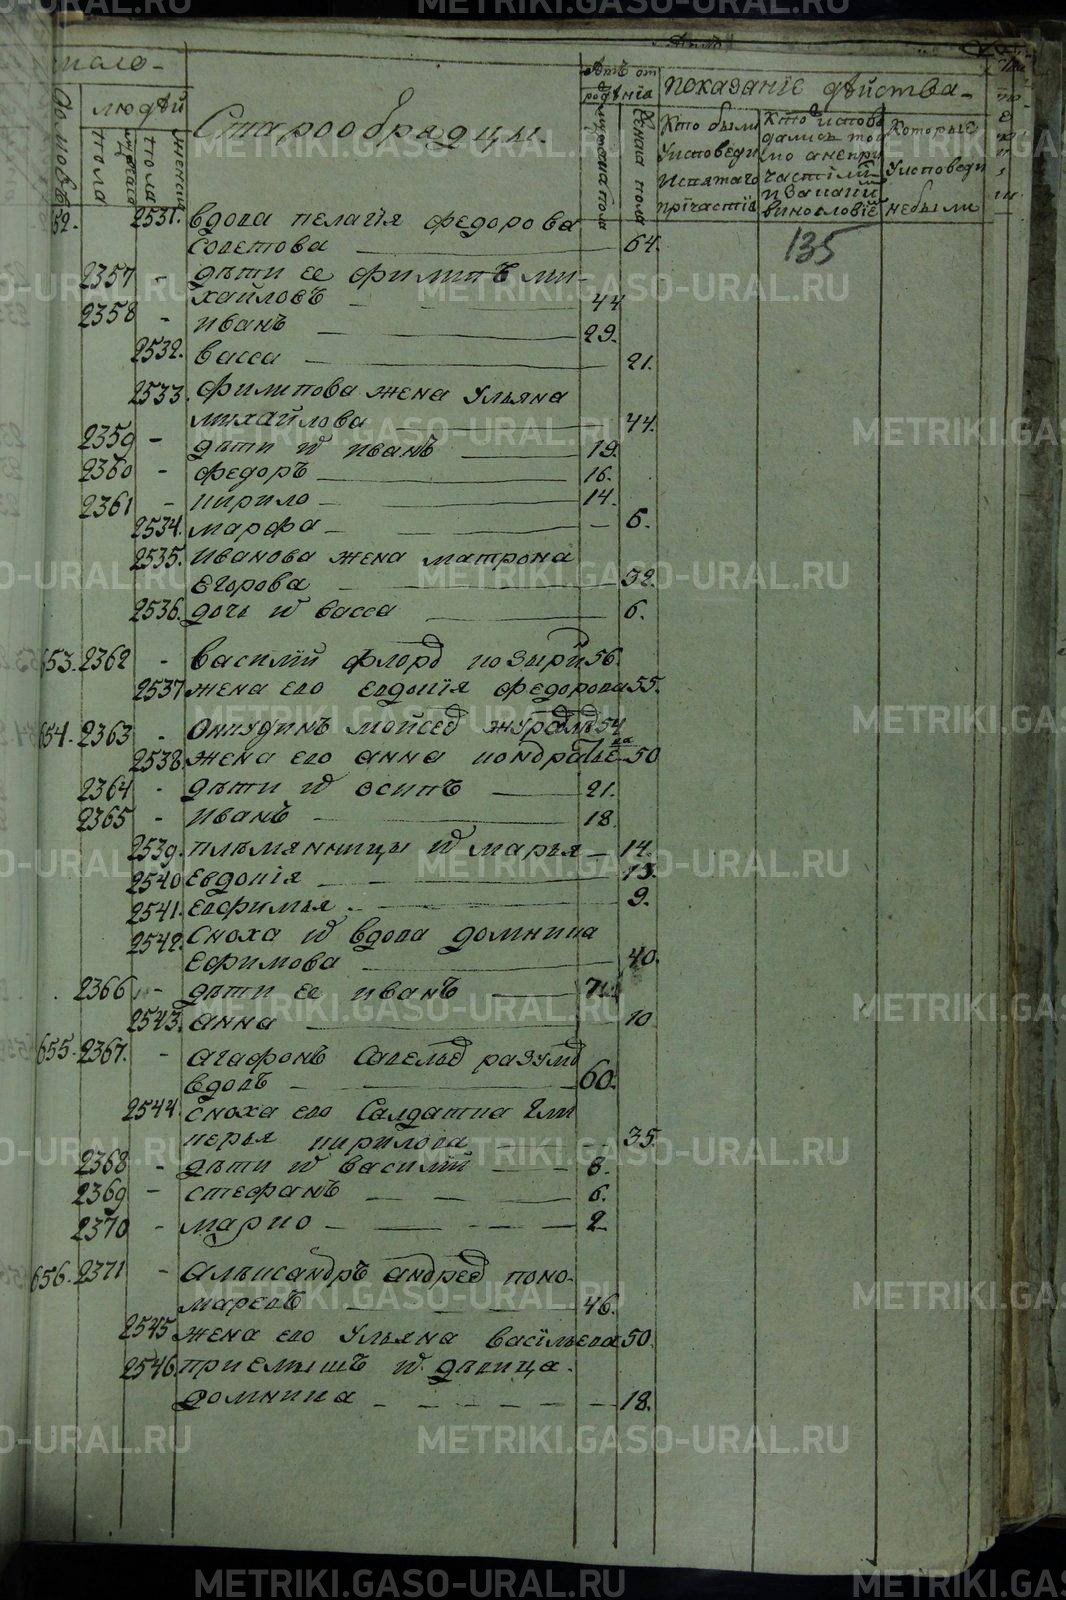 число
людей
Домовъ
мужеска пола
женска пола
Старообрядцы.
Лѣтъ от рождѣнiа
мужеска пола
женска пола
показанiе дѣйства
Кто были у исповеди и святаго причастiѧ
Кто исповѣдались токмо а непричастились и за каким винословiе
Которые у исповеди небыли
135
52. 2531. вдова пелагiя федорова
Советова 64.
2357 - дѣти ее филипъ ми-
хайловъ 44
2358 - иванъ 29.
2532. васса 21.
2533. филипова жена Ульяна
михайлова 44.
2359 - дѣти иꙋ иванъ 19.
2360 - федоръ 16.
2361 - кирило 14.
2534. марфа - 6.
2535. иванова жена матрона
Егорова 32.
2536. дочь иꙋ васса 6.
653. 2362 - василiй флоров козырин 56.
2537 жена его евдокiя федорова 55.
654. 2363 - Анкудинъ мойсеев журавлев 54
2538. жена его анна кондратьева 50
2364 - дѣти иꙋ осипъ 21.
2365 - иванъ 18.
2539. племянницы иꙋ марья - 14.
2540 евдокiя 13.
2541. евфимья 9.
2542. сноха иꙋ вдова домника
Ефимова 40.
2366 - дѣти ее иванъ 7.
2543. анна 10
655. 2367. - агафонъ савельев разумов
вдовъ 60.
2544. сноха его Салдатка гли
керья кирилова 35.
2368 - дѣти иꙋ василiй 8.
2369 - стефанъ 6.
2370 - марко 2
656. 2371 - алѣксандръ андреев поно-
маревъ 46.
2545 жена его Ульяна васiльева 50.
2546. приемышъ иꙋ дѣвица.
домника 18.
METRIKI.GASO-URAL.RU